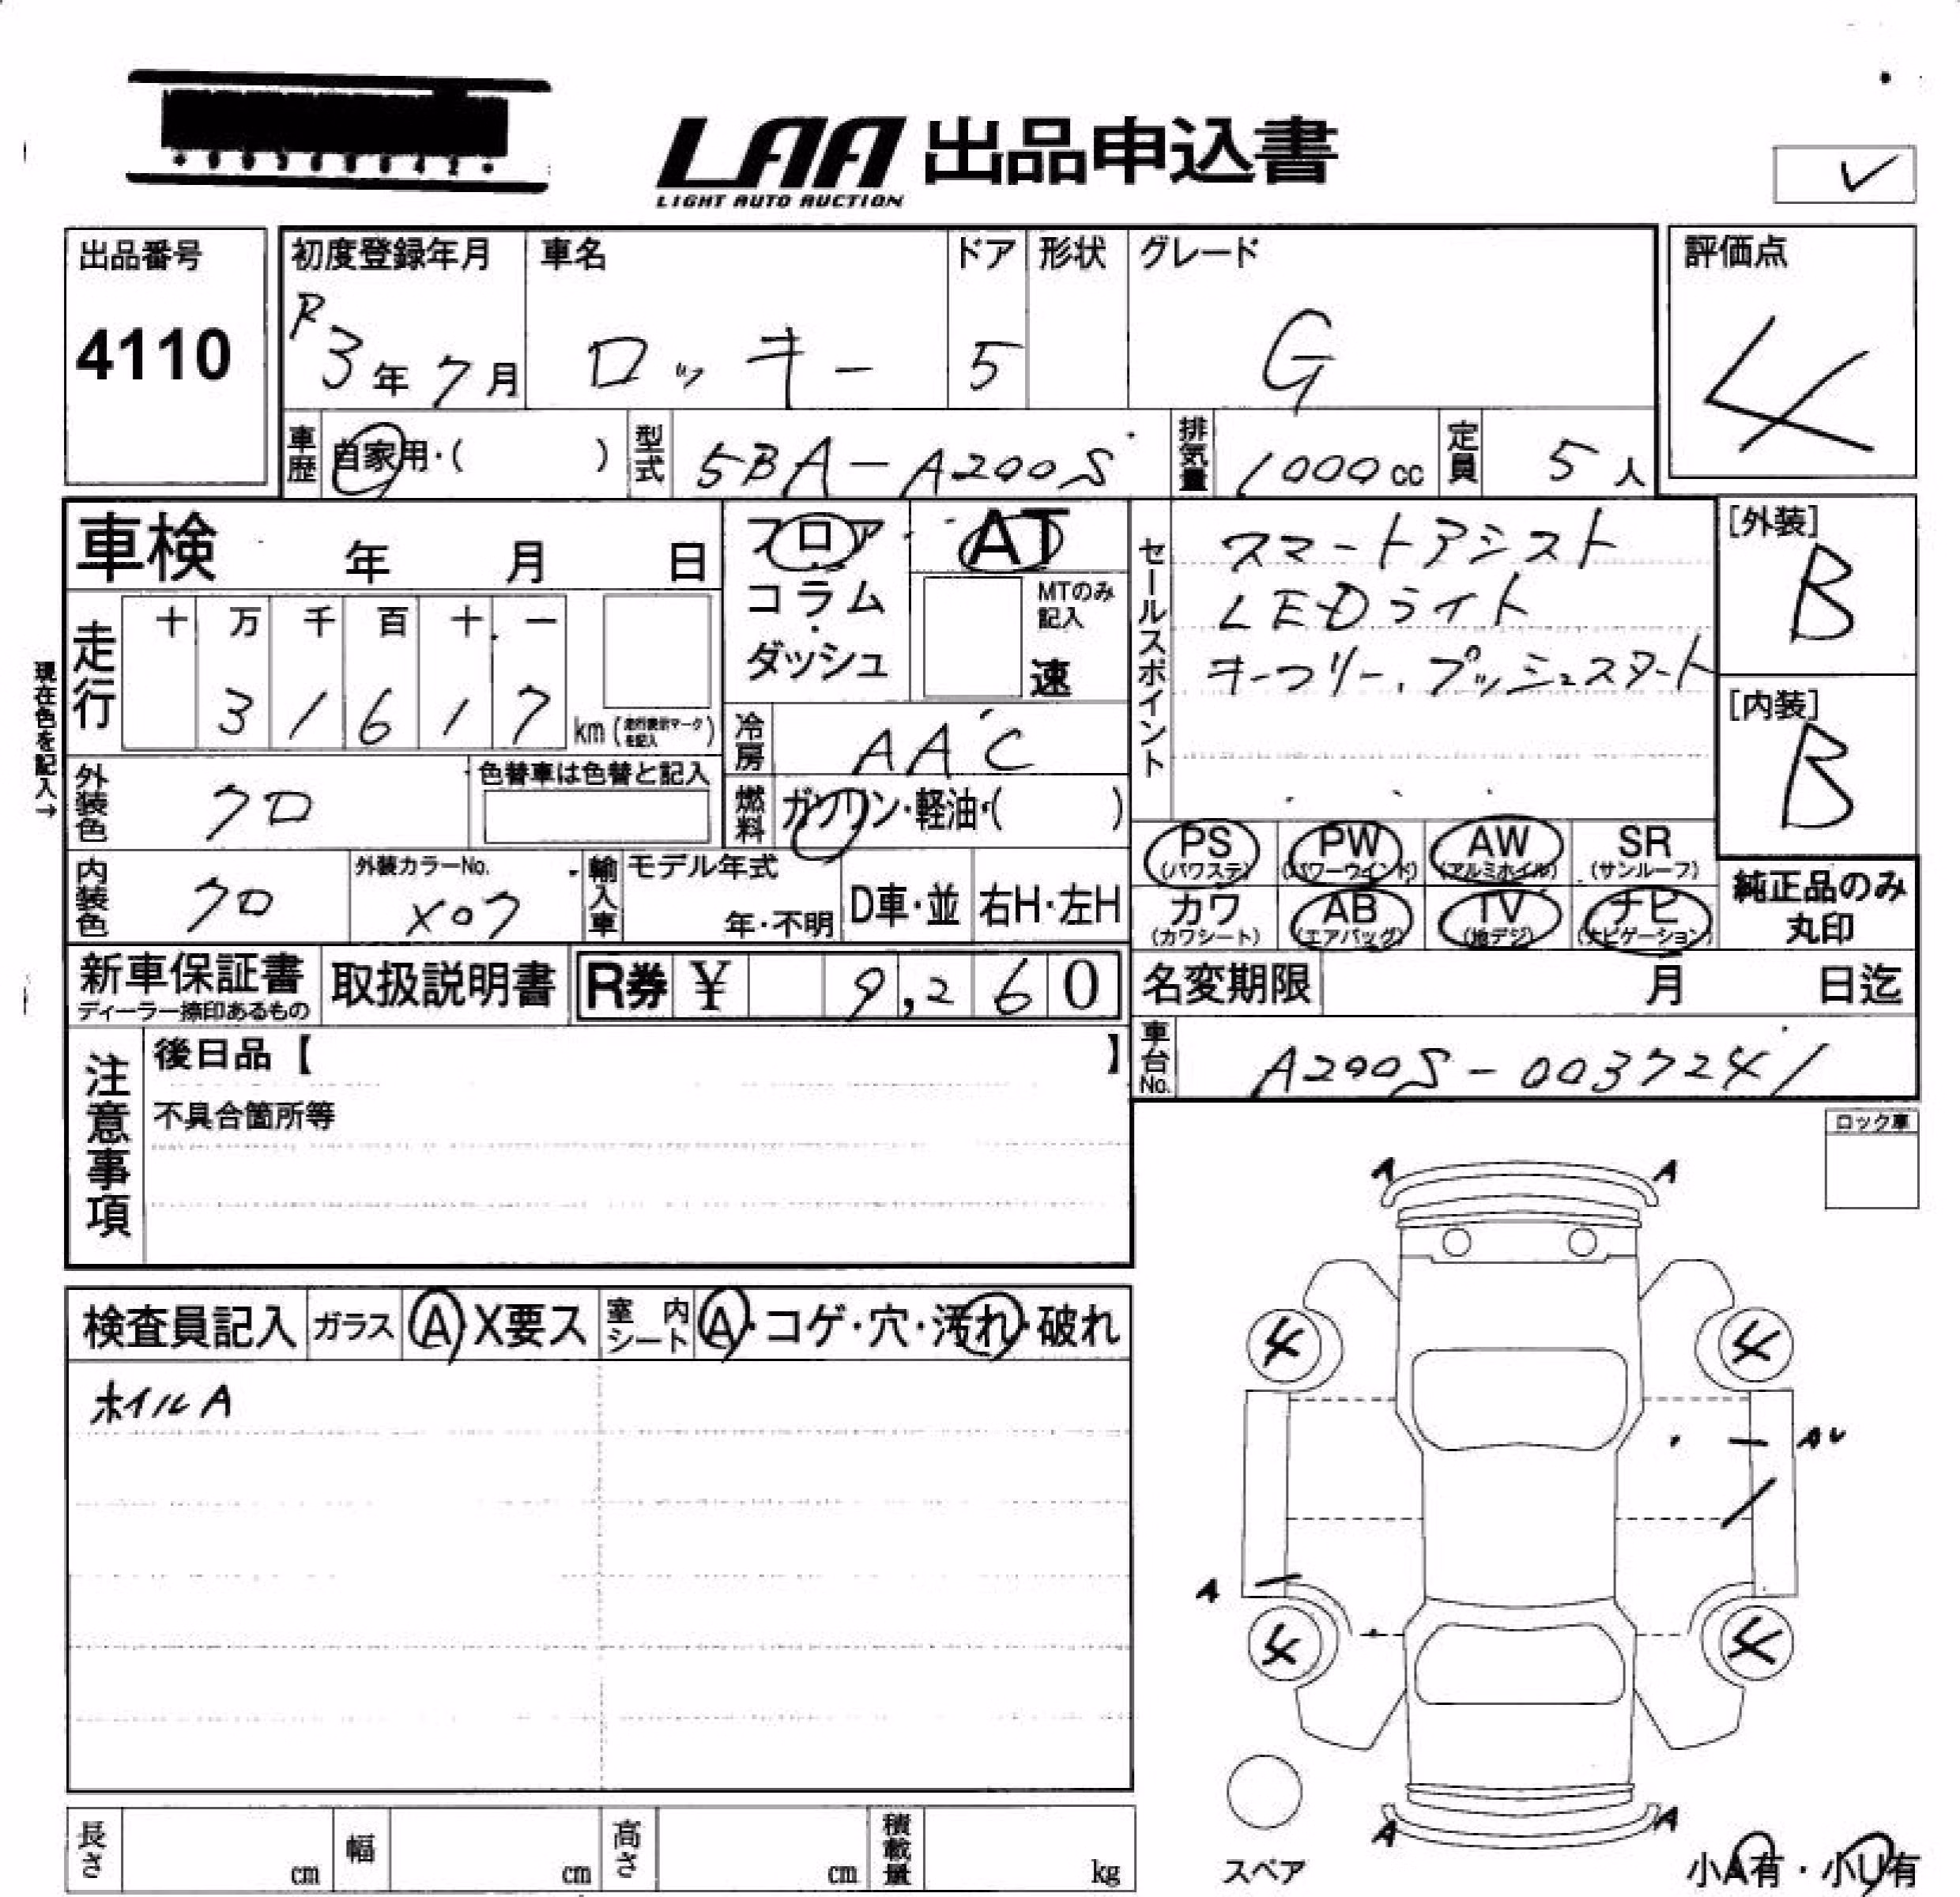 LAA 出品申込書
LIGHT AUTO AUCTION
✓
出品番号
4110
初度登録年月
R3年7月
車名
ロッキー
ドア
5
形状
グレード
G
評価点
4
車歴
自家用・( )
型式
5BA-A200S
排気量
1000cc
定員
5人
車検 年 月 日
フロア
コラム
・
ダッシュ
AT
MTのみ
記入
速
セールスポイント
スマートアシスト
LEDライト
キーフリー、プッシュスタート
[外装]
B
[内装]
B
現在色を記入→
走行
十 万 千 百 十 一
3 1 6 1 7
km(走行表示マークを記入)
冷房
AAC
外装色
クロ
色替車は色替と記入
燃料
ガソリン・軽油・( )
PS
(パワステ)
PW
(パワーウインド)
AW
(アルミホイル)
SR
(サンルーフ)
カワ
(カワシート)
AB
(エアバッグ)
TV
(地デジ)
ナビ
(ナビゲーション)
純正品のみ
丸印
内装色
クロ
外装カラーNo.
X07
輸入車
モデル年式
年・不明
D車・並
右H・左H
新車保証書
ディーラー捺印あるもの
取扱説明書
R券 ¥ 9,260
名変期限 月 日迄
車台No.
A200S-0037241
注意事項
後日品【 】
不具合箇所等
ロック車
検査員記入
ガラス
A・X要ス
室内シート
A・コゲ・穴・汚れ・破れ
ホイルA
A A
4 4
AU
A
4 4
A A
スペア
小A有・小U有
長さ cm
幅 cm
高さ cm
積載量 kg